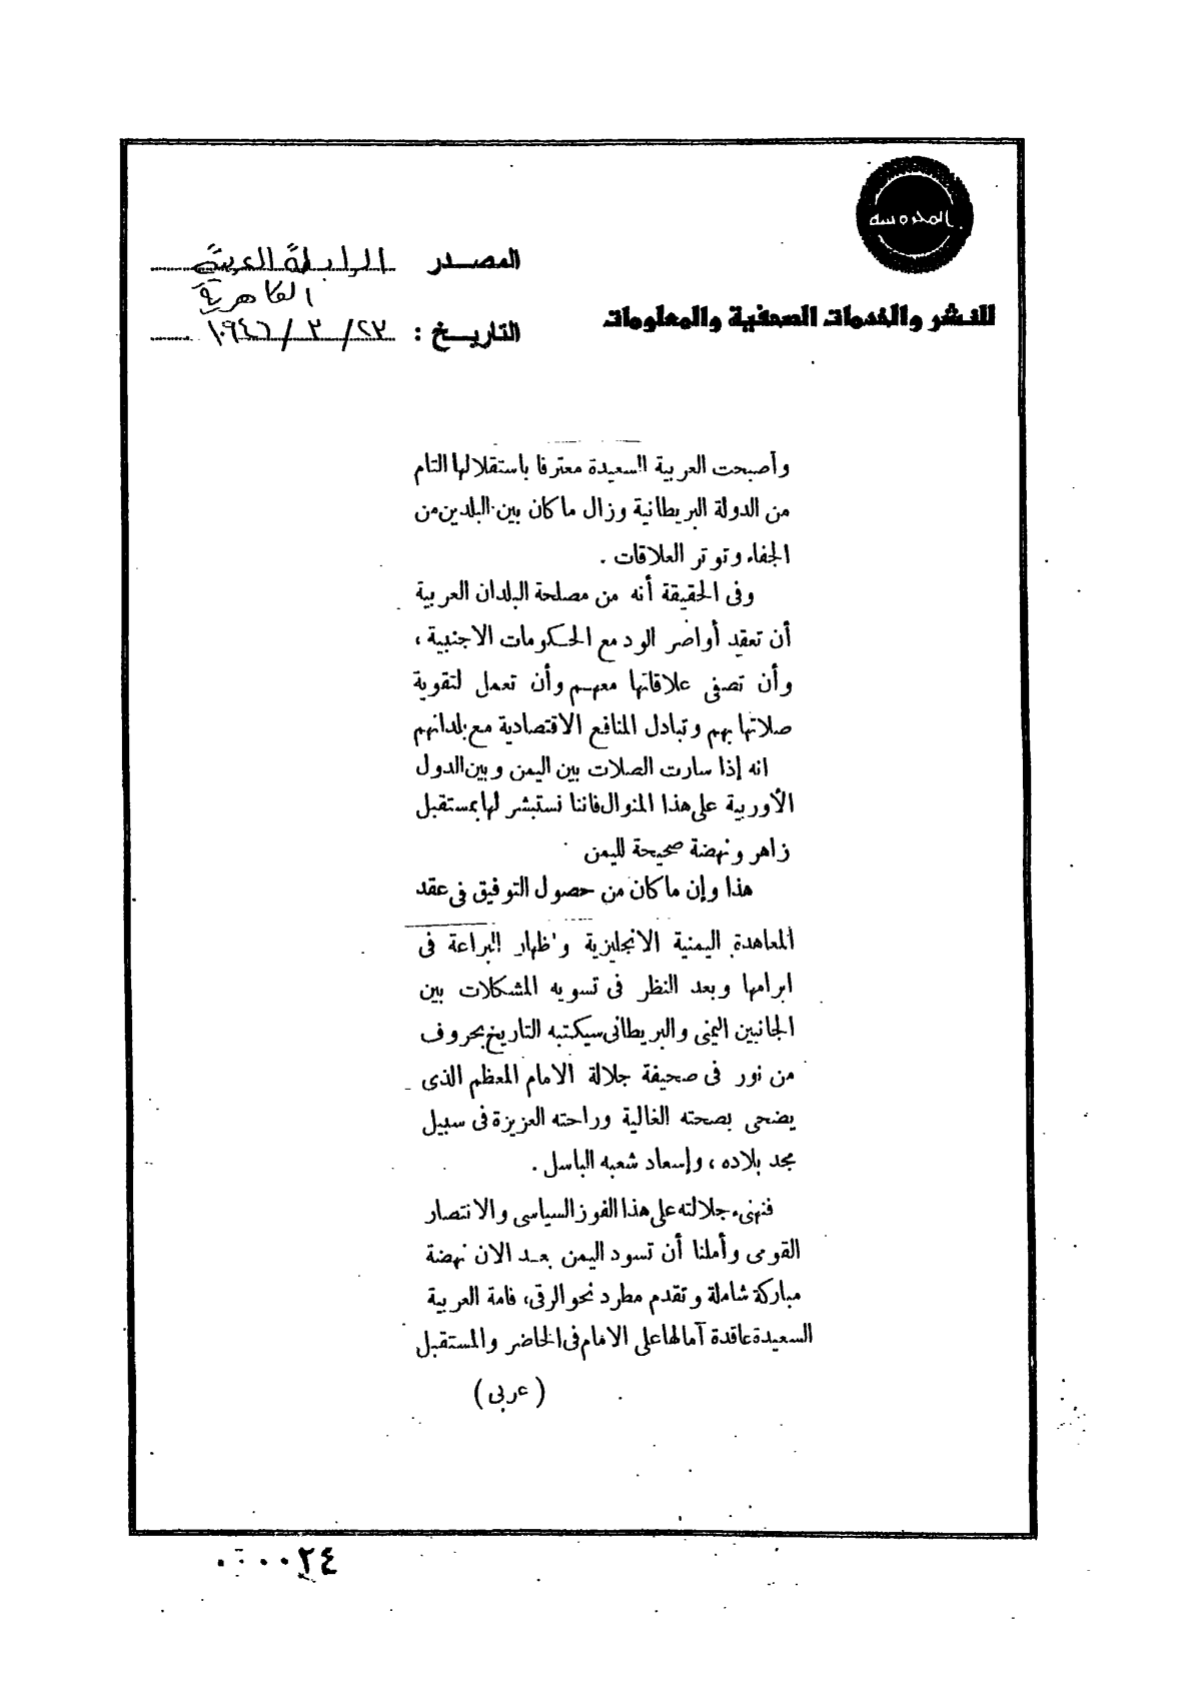 المحروسه
للنشر والخدمات الصحفية والمعلومات
المصدر الرابطة العربية
القاهرية
التاريخ : ٢٣ / ٣ /
وأصبحت العربية السعيدة معترفا باستقلالها التام
من الدولة البريطانية وزال ما كان بين البلدين من
الجفاء وتوتر العلاقات .
وفى الحقيقة أنه من مصلحة البلدان العربية
أن تعقد أواصر الود مع الحكومات الاجنبية ،
وأن تصفى علاقاتها معهم وأن تعمل لتقوية
صلاتها بهم وتبادل المنافع الاقتصادية مع بلدانهم
انه إذا سارت الصلات بين اليمن وبين الدول
الأوربية على هذا المنوال فاننا نستبشر لها بمستقبل
زاهر ونهضة صحيحة لليمن
هذا وإن ما كان من حصول التوفيق فى عقد
المعاهدة اليمنية الانجليزية واظهار البراعة فى
ابرامها وبعد النظر فى تسويه المشكلات بين
الجانبين اليمنى والبريطانى سيكتبه التاريخ بحروف
من نور فى صحيفة جلالة الامام المعظم الذى
يضحى بصحته الغالية وراحته العزيزة فى سبيل
مجد بلاده ، وإسعاد شعبه الباسل .
فنهنىء جلالته على هذا الفوز السياسى والانتصار
القومى وأملنا أن تسود اليمن بعد الان نهضة
مباركة شاملة وتقدم مطرد نحو الرقى ، فامة العربية
السعيدة عاقدة آمالها على الامام فى الحاضر والمستقبل
( عربى )
٠٠٠٠٢٤